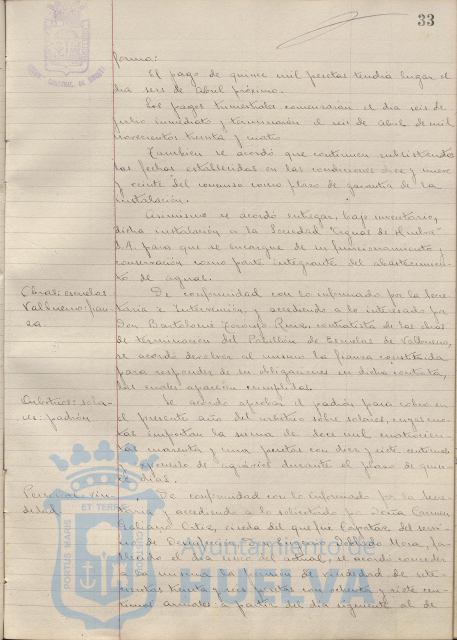 33
forma:
El pago de quince mil pesetas tendrá lugar el
día seis de Abril próximo.
Los pagos trimestrales comenzarán el día seis de
julio inmediato y terminarán el seis de Abril de mil
novecientos treinta y cuatro.
También se acordó que continuen subsistiendo
las fechas establecidas en las condiciones diez y nueve
y veinte del concurso como plazo de garantía de la
instalación.
Asimismo se acordó entregar, bajo inventario,
dicha instalación a la Sociedad "Aguas de Huelva"
S.A. para que se encargue de su funcionamiento y
conservación como parte integrante del abastecimien-
to de aguas.
Obras: escuelas
Valbueno: fian-
za
De conformidad con lo informado por la Secre-
taría e Intervención, y accediendo a lo interesado por
Don Bartolomé contratista de las obras
de terminación del Pabellón de Escuelas de Valbueno,
se acordó devolver al mismo la fianza constituida
para responder de sus obligaciones en dicha contrata,
las cuales aparecen cumplidas.
Arbitrios: sola-
res: padrón
Se acordó aprobar el padrón para cobro en
el presente año del arbitrio sobre solares, cuyas cuo-
tas importan la suma de doce mil
cuarenta y una pesetas con diez y siete céntimos
y exponerlo de agravios durante el plazo de quin-
ce días.
Personal: viu-
dedad
De conformidad con lo informado por la Secre-
taría y accediendo a lo solicitado por Doña Carmen
Ortiz, viuda del que fue Capataz del servi-
cio de Desinfección, Don Eugenio Dobado Mora, fa-
llecido el día del actual, se acordó conceder
a la misma la pensión de viudedad de sete-
cientas treinta y seis pesetas con ochenta y siete cén-
timos anuales a partir del día siguiente al de
PORTUS MARIS
ET TERRAE
Ayuntamiento de
HUELVA